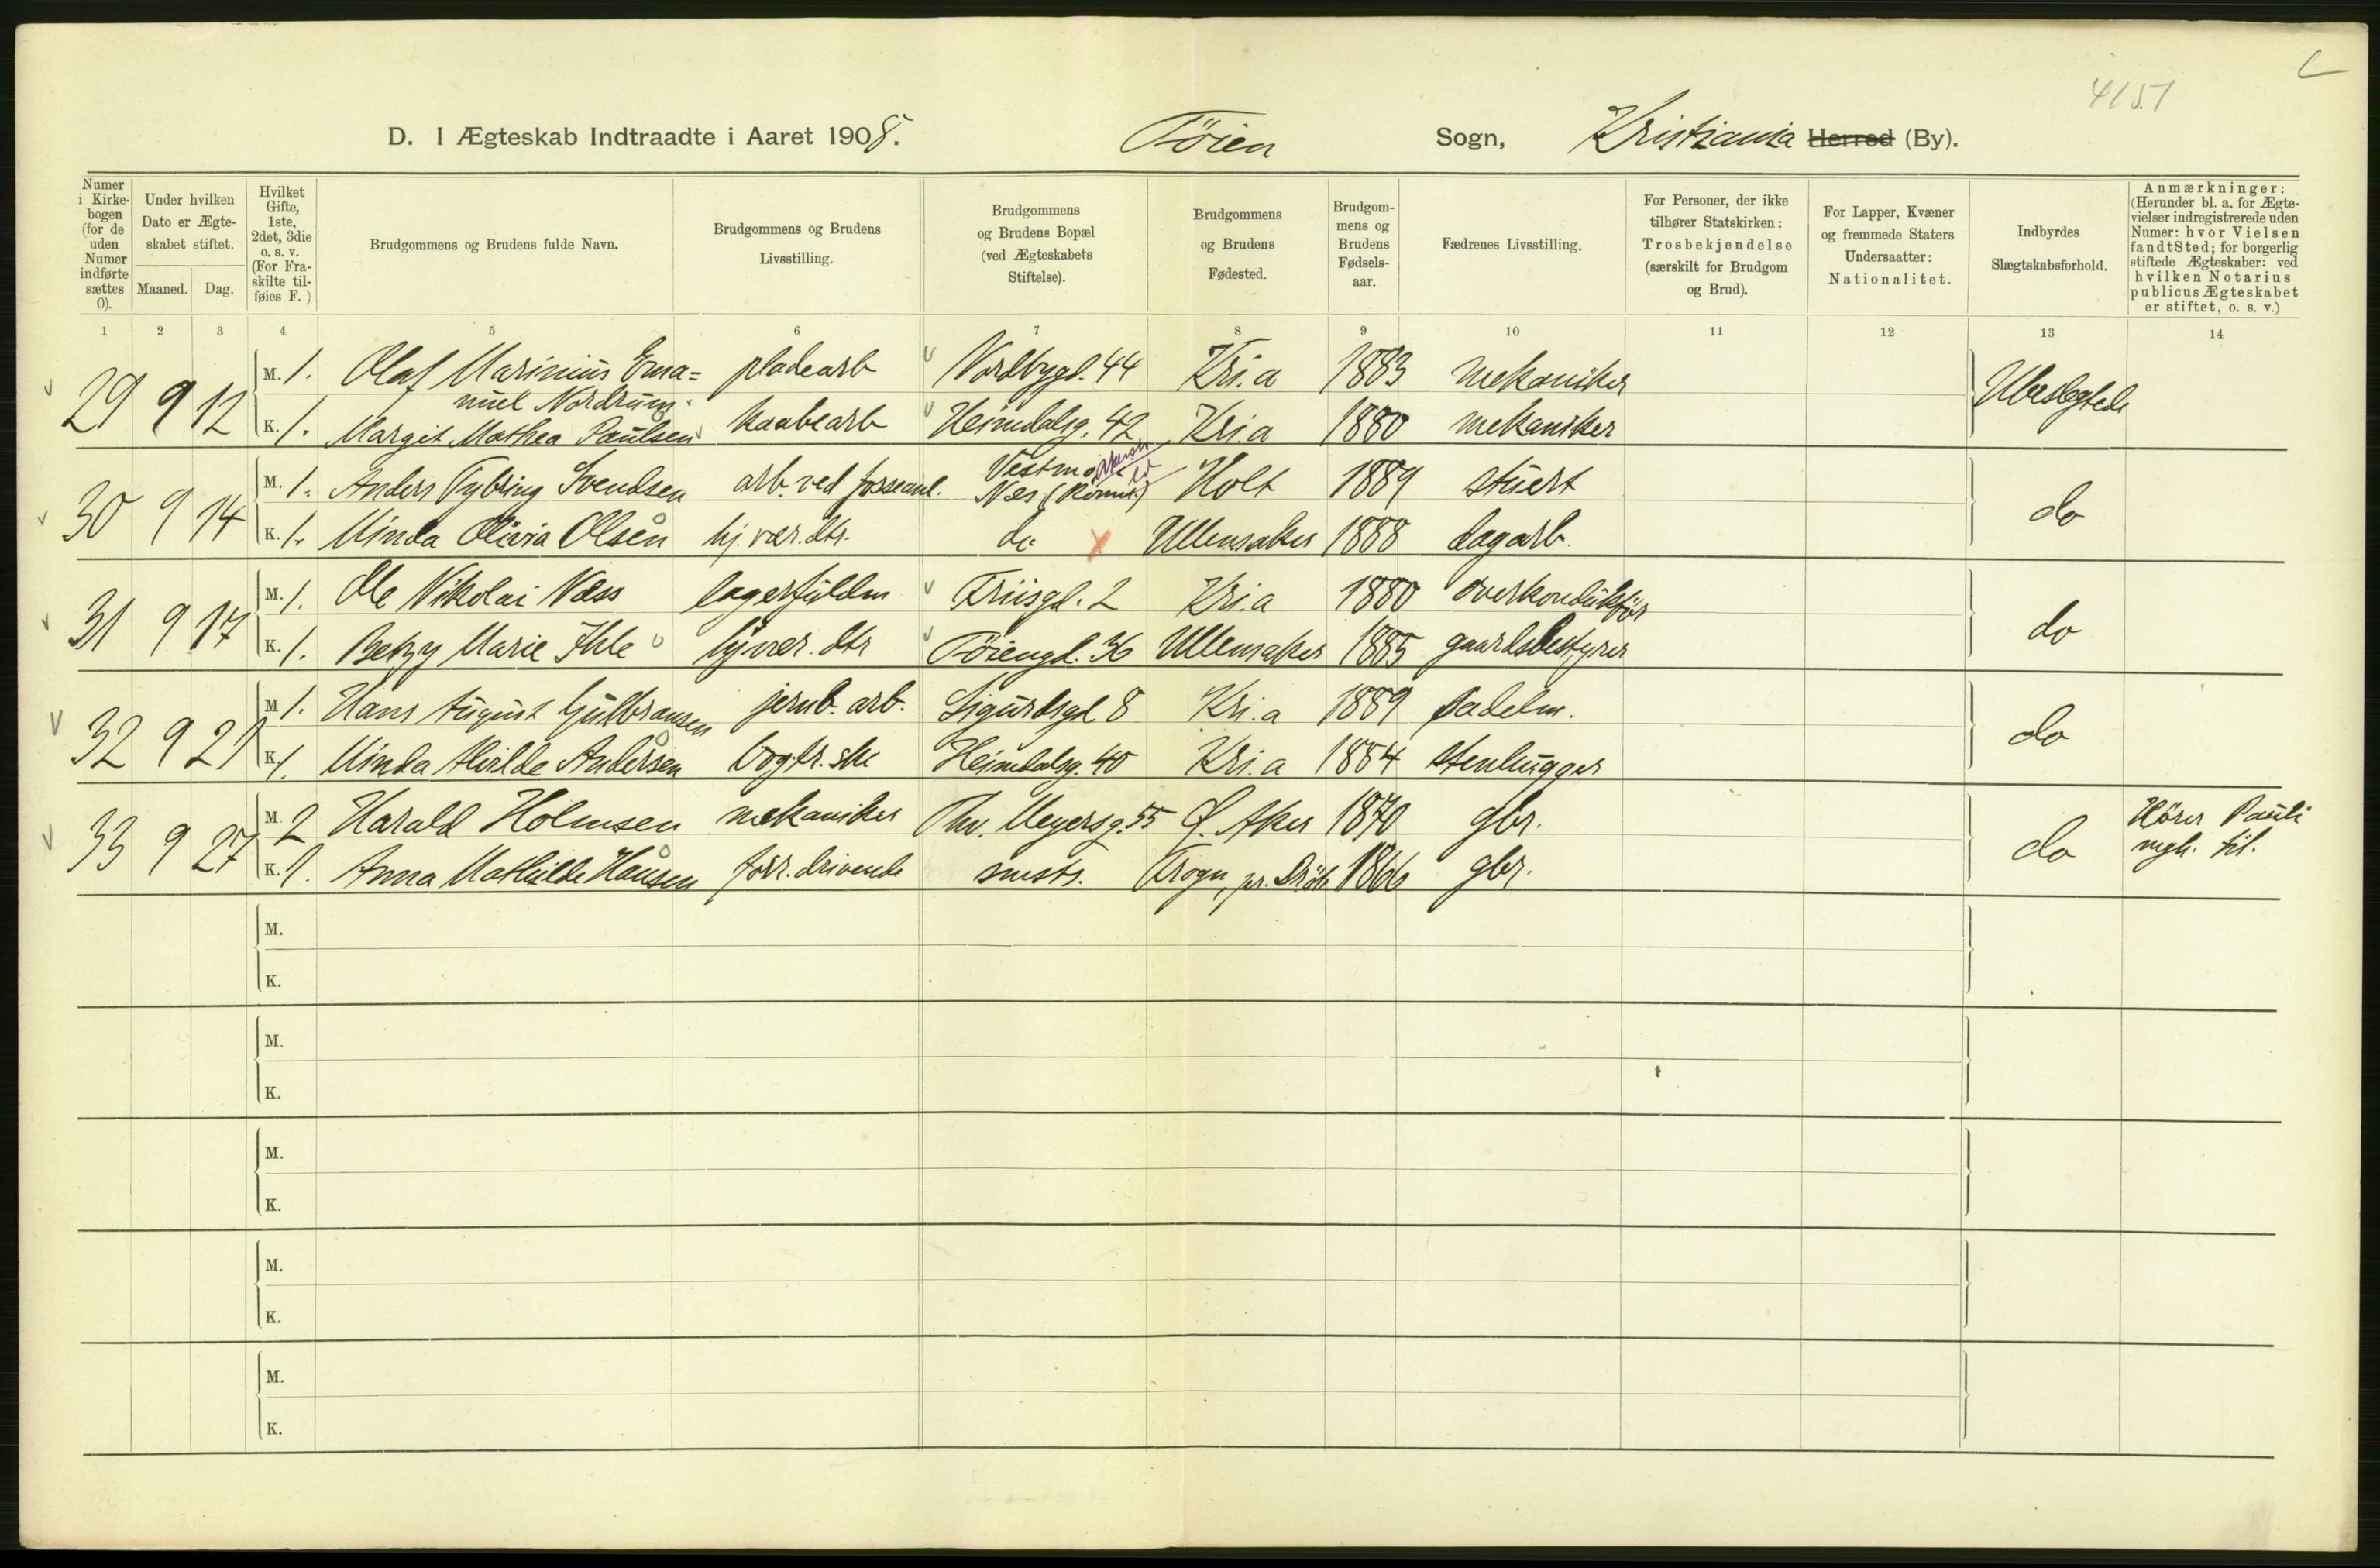 4151
D. I Ægteskab Indtraadte i Aaret 1908. Tøien Sogn, Kristiania Herred (By).
Numer i Kirkebogen (for de uden Numer indførte sættes 0).
Under hvilken Dato er Ægteskabet stiftet.
Maaned. Dag.
Hvilket Gifte, 1ste, 2det, 3die o. s. v. (For Fraskilte tilføies F.)
Brudgommens og Brudens fulde Navn.
Brudgommens og Brudens Livsstilling.
Brudgommens og Brudens Bopæl (ved Ægteskabets Stiftelse).
Brudgommens og Brudens Fødested.
Brudgommens og Brudens Fødselsaar.
Fædrenes Livsstilling.
For Personer, der ikke tilhører Statskirken: Trosbekjendelse (særskilt for Brudgom og Brud).
For Lapper, Kvæner og fremmede Staters Undersaatter: Nationalitet.
Indbyrdes Slægtskabsforhold.
Anmærkninger: (Herunder bl. a. for Ægtevielser indregistrerede uden Numer: hvor Vielsen fandt Sted; for borgerlig stiftede Ægteskaber: ved hvilken Notarius publicus Ægteskabet er stiftet, o. s. v.)
1 2 3 4 5 6 7 8 9 10 11 12 13 14
29 9 12 M. 1. Olaf Marinius Ema= pladearb Nordbygd. 44 Kri.a 1883 mekaniker Ubeslegtede
nuel Nordrum
K. 1. Margit Mathea Paulsen kaabearb Heimdalsg. 42 Kri.a 1880 mekaniker
30 9 14 M. 1. Anders Tybring Svendsen arb. ved fosseanl. Næs (Romer.) Holt 1889 stuert do
K. 1. Minda Olivia Olsen hj. vær. dtr. do Ullensaker 1888 dagarb.
31 9 17 M. 1. Ole Nikolai Næss lagerfuldm Friisgd. 2 Kri.a 1880 overkonduktør do
K. 1. Betzy Marie Ihle hj vær. dtr Tøiengd. 36 Ullensaker 1885 gaardsbestyrer
32 9 21 M 1. Hans August Gulbransen jernb. arb. Sigurdsgd 8 Kri.a 1889 sadelm. do
K. 1. Minda Alvilde Andersen bogtr. ske Heimdalsg. 40 Kri.a 1884 stenhugger
33 9 27 M. 2 Harald Holmsen mekaniker Thv. Meyersg. 55 Ø. Aker 1870 gbr. do Hører Pauli
mgh. til.
K. 1. Anna Mathilde Hansen forr. drivende smsts. Frogn, pr. Drøb. 1866 gbr.
M.
K.
M.
K.
M.
K.
M.
K.
M.
K.